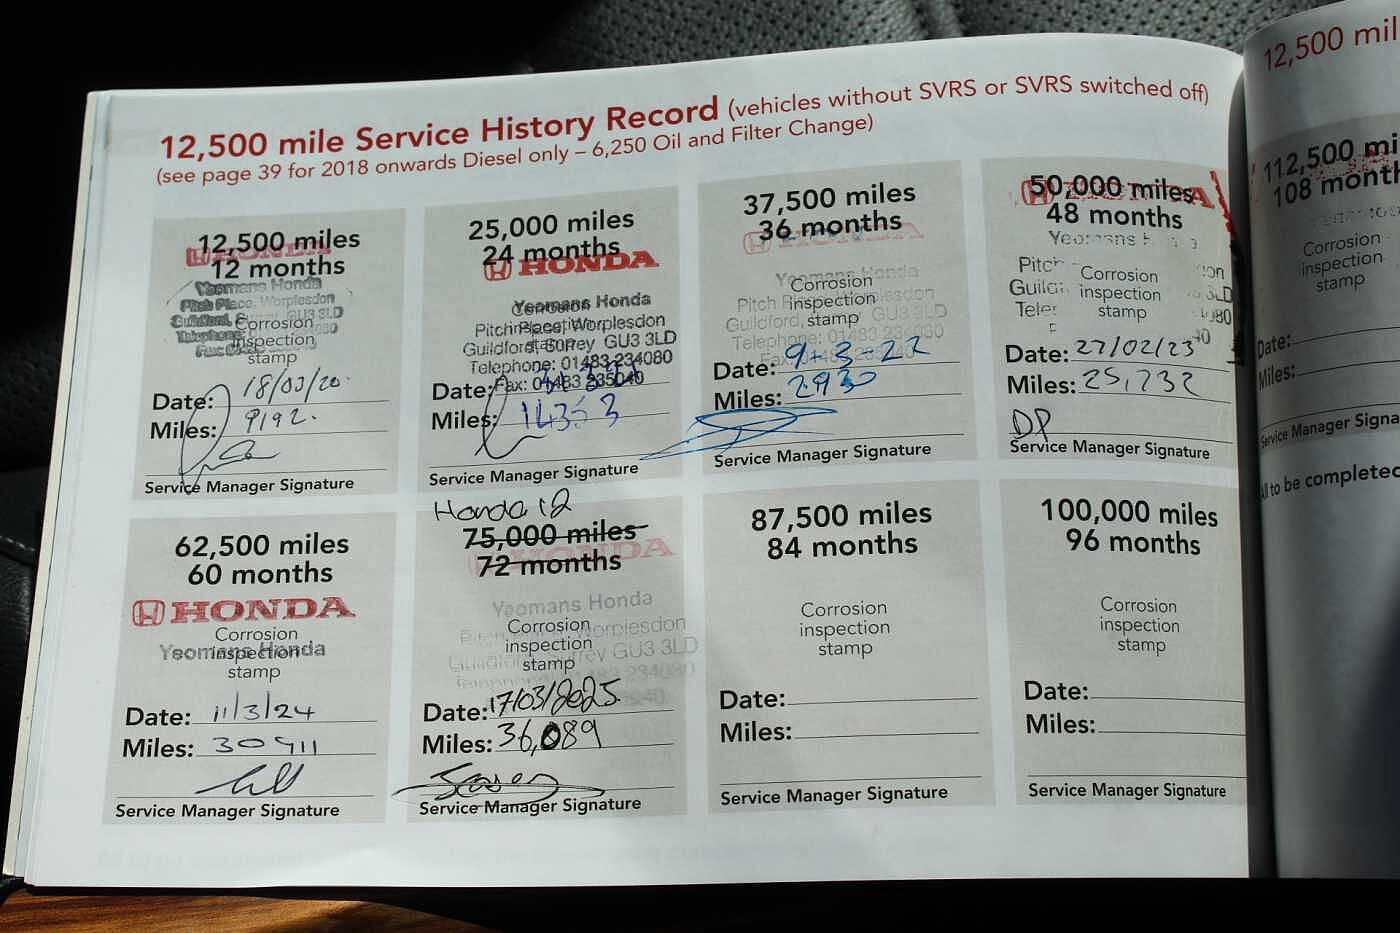 12,500 mile Service History Record (vehicles without SVRS or SVRS switched off)
(see page 39 for 2018 onwards Diesel only – 6,250 Oil and Filter Change)
12,500 miles
12 months
HONDA
Yeomans Honda
Pitch Place, Worplesdon
Guildford, GU3 3LD
Telephone
Fax:
Corrosion
inspection
stamp
Date: 18/03/20.
Miles: 9192.
Service Manager Signature
25,000 miles
24 months
HONDA
Yeomans Honda
Corrosion
inspection
stamp
Pitch Place, Worplesdon
Guildford, Surrey GU3 3LD
Telephone: 01483 234080
Fax: 01483 235040
Date:
Miles:
Service Manager Signature
37,500 miles
36 months
HONDA
Yeomans Honda
Corrosion
inspection
stamp
Pitch Place, Worplesdon
Guildford, Surrey GU3 3LD
Telephone: 01483 234080
Date: 9-3-22
Miles: 2930
Service Manager Signature
50,000 miles
48 months
HONDA
Yeomans
Pitch
Corrosion
inspection
stamp
Date: 27/02/23
Miles: 25,732
DP
Service Manager Signature
62,500 miles
60 months
HONDA
Yeomans Honda
Corrosion
inspection
stamp
Date: 11/3/24
Miles: 30911
Service Manager Signature
Honda 12
75,000 miles
72 months
HONDA
Yeomans Honda
Corrosion
inspection
stamp
Worplesdon
Guildford, Surrey GU3 3LD
Date: 17/03/2025
Miles: 36,089
Service Manager Signature
87,500 miles
84 months
Corrosion
inspection
stamp
Date:
Miles:
Service Manager Signature
100,000 miles
96 months
Corrosion
inspection
stamp
Date:
Miles:
Service Manager Signature
12,500 mil
112,500 mi
108 month
Corrosion
inspection
stamp
Date:
Miles:
Service Manager Signa
All to be completed